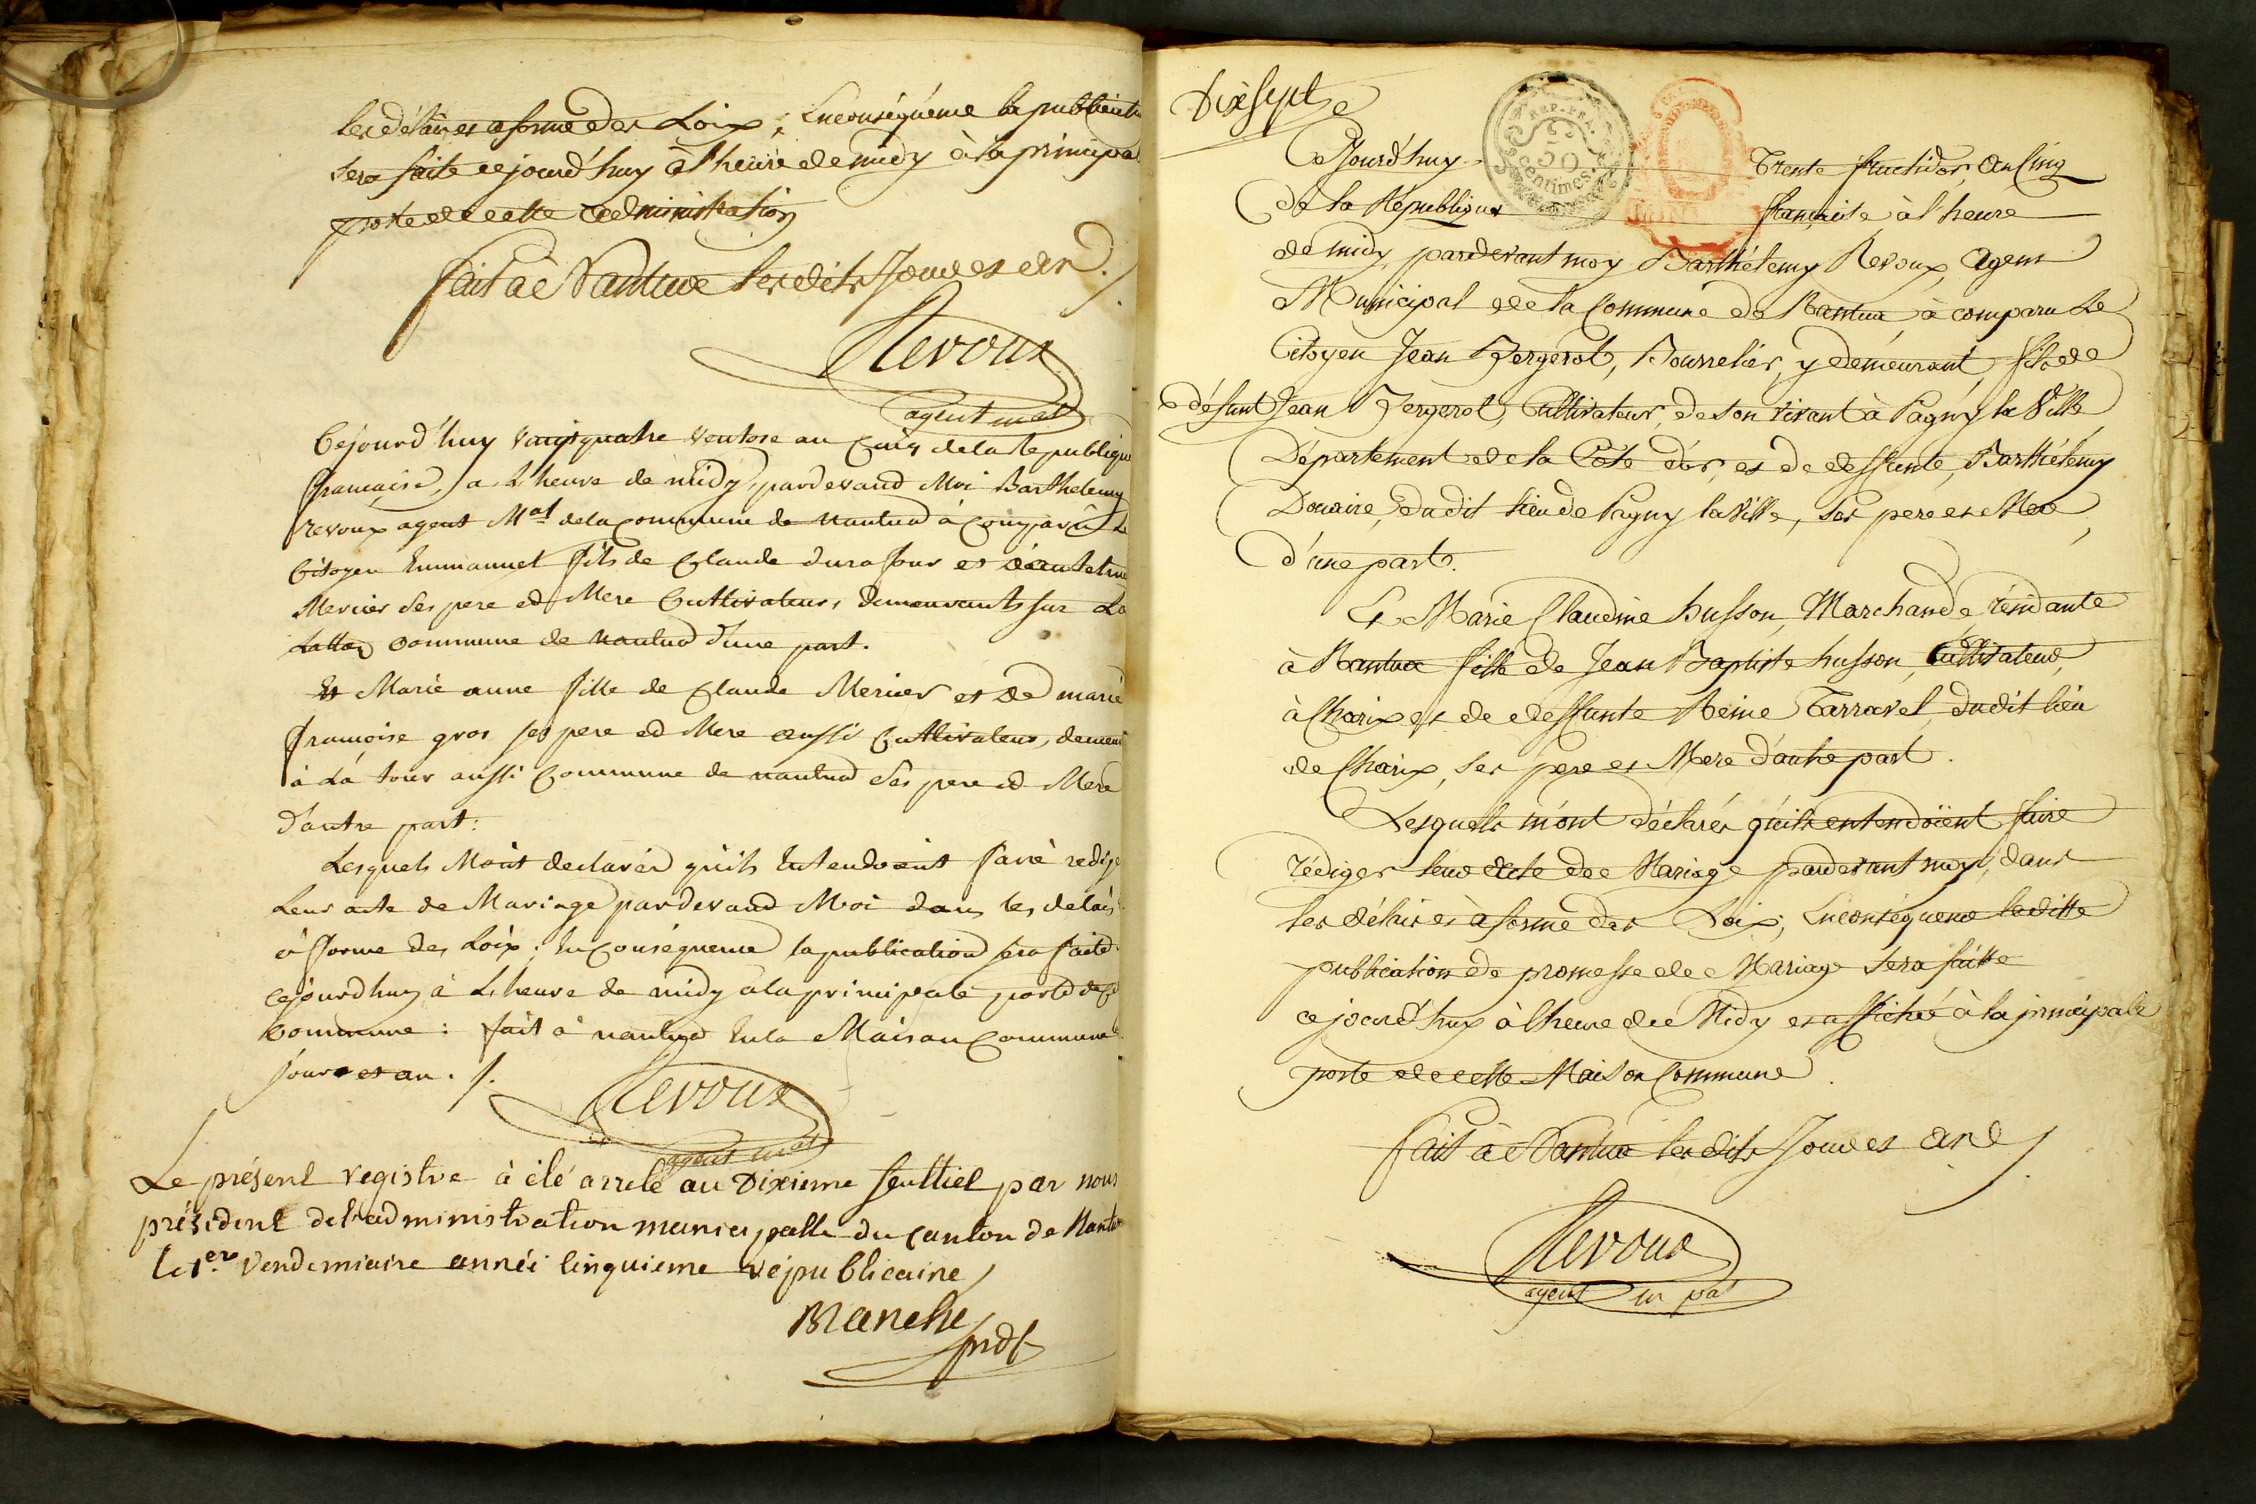 les délais et a forme des Loix; Enconséquence la publication
sera faite cejourd'huy à l'heure de midy à la principa
porte de cette administration
fait à Nantua lesdits Jour et an ./.
Revoux
agent mal
Cejourd'huy vingt quatre ventose an Cinq de la republique
française, a L'heure de midy, pardevand Moi Barthelemy
revoux agent Mal de la Commune de nantua à Comparû Le
Citoyen Emmanuel fils de Claude Durafour et
Mercier Ses pere ed Mere Cultivateurs demeurants sur La
commune de nantua d'une part.
Et Marie anne fille de Claude Mercier et de marie
françoise gros ses pere ed Mere aussi Cultivateurs, demeu
à La tour aussi Commune de nantua Ses pere ed Mere
d'autre part:
Lesquels M'ont declarés qu'ils Entendoint faire redige
Leur acte de Mariage pardevand Moi dans les delais
à forme des Loix; En Conséquence la publication sera faite
cejourdhuy à L'heure de midy à la principale porte de
Commune: fait à nantua En la Maison Commune
jour et an. /.
Revoux
agent mal
Le présent registre à été arrelé au Dixieme feulliet par nous
président de l'administration municipalle du canton de Nantua
le 1er. Vendemiaire année Cinquieme républicaine
Manche
prdt
Dix Sept
REP. FRA.
50
Centimes
Cejourd'huy Trente fructidor, an Cinq
de la République française à l'heure
de midy pardevant moy Barthélemy Revoux, Agent
Municipal de la Commune de Nantua à comparu Le
Citoyen Jean Bergerot, Bourrelier, y demeurant, fils de
défunt Jean Bergerot, Cultivateur, de son vivant à Pagny la Ville
Département de la Côte d'or, et de deffunte, Barthélemy
Douaire, dudit lieu de Pagny la Ville, Ses pere et Mere,
d'une part.
Et Marie Claudine husson, Marchande, résidante
à Nantua fille de Jean Baptiste husson, Cultivateur,
à Charix et de deffunte Reine Tarravel dudit lieu
de Charix, Ses pere et Mere d'autre part.
Lesquels m'ont déclarés qu'ils entendoient faire
rédiger leur acte de Mariage pardevant moy, dans
les délais et à forme des Loix; Enconséquence laditte
publication de promesse de Mariage Séra faitte
ce jourd'huy à l'heure de Midy et affiché à la principale
porte de cette Maison Commune.
fait à Nantua lesdits Jour et an ./.
Revoux
agent m pal